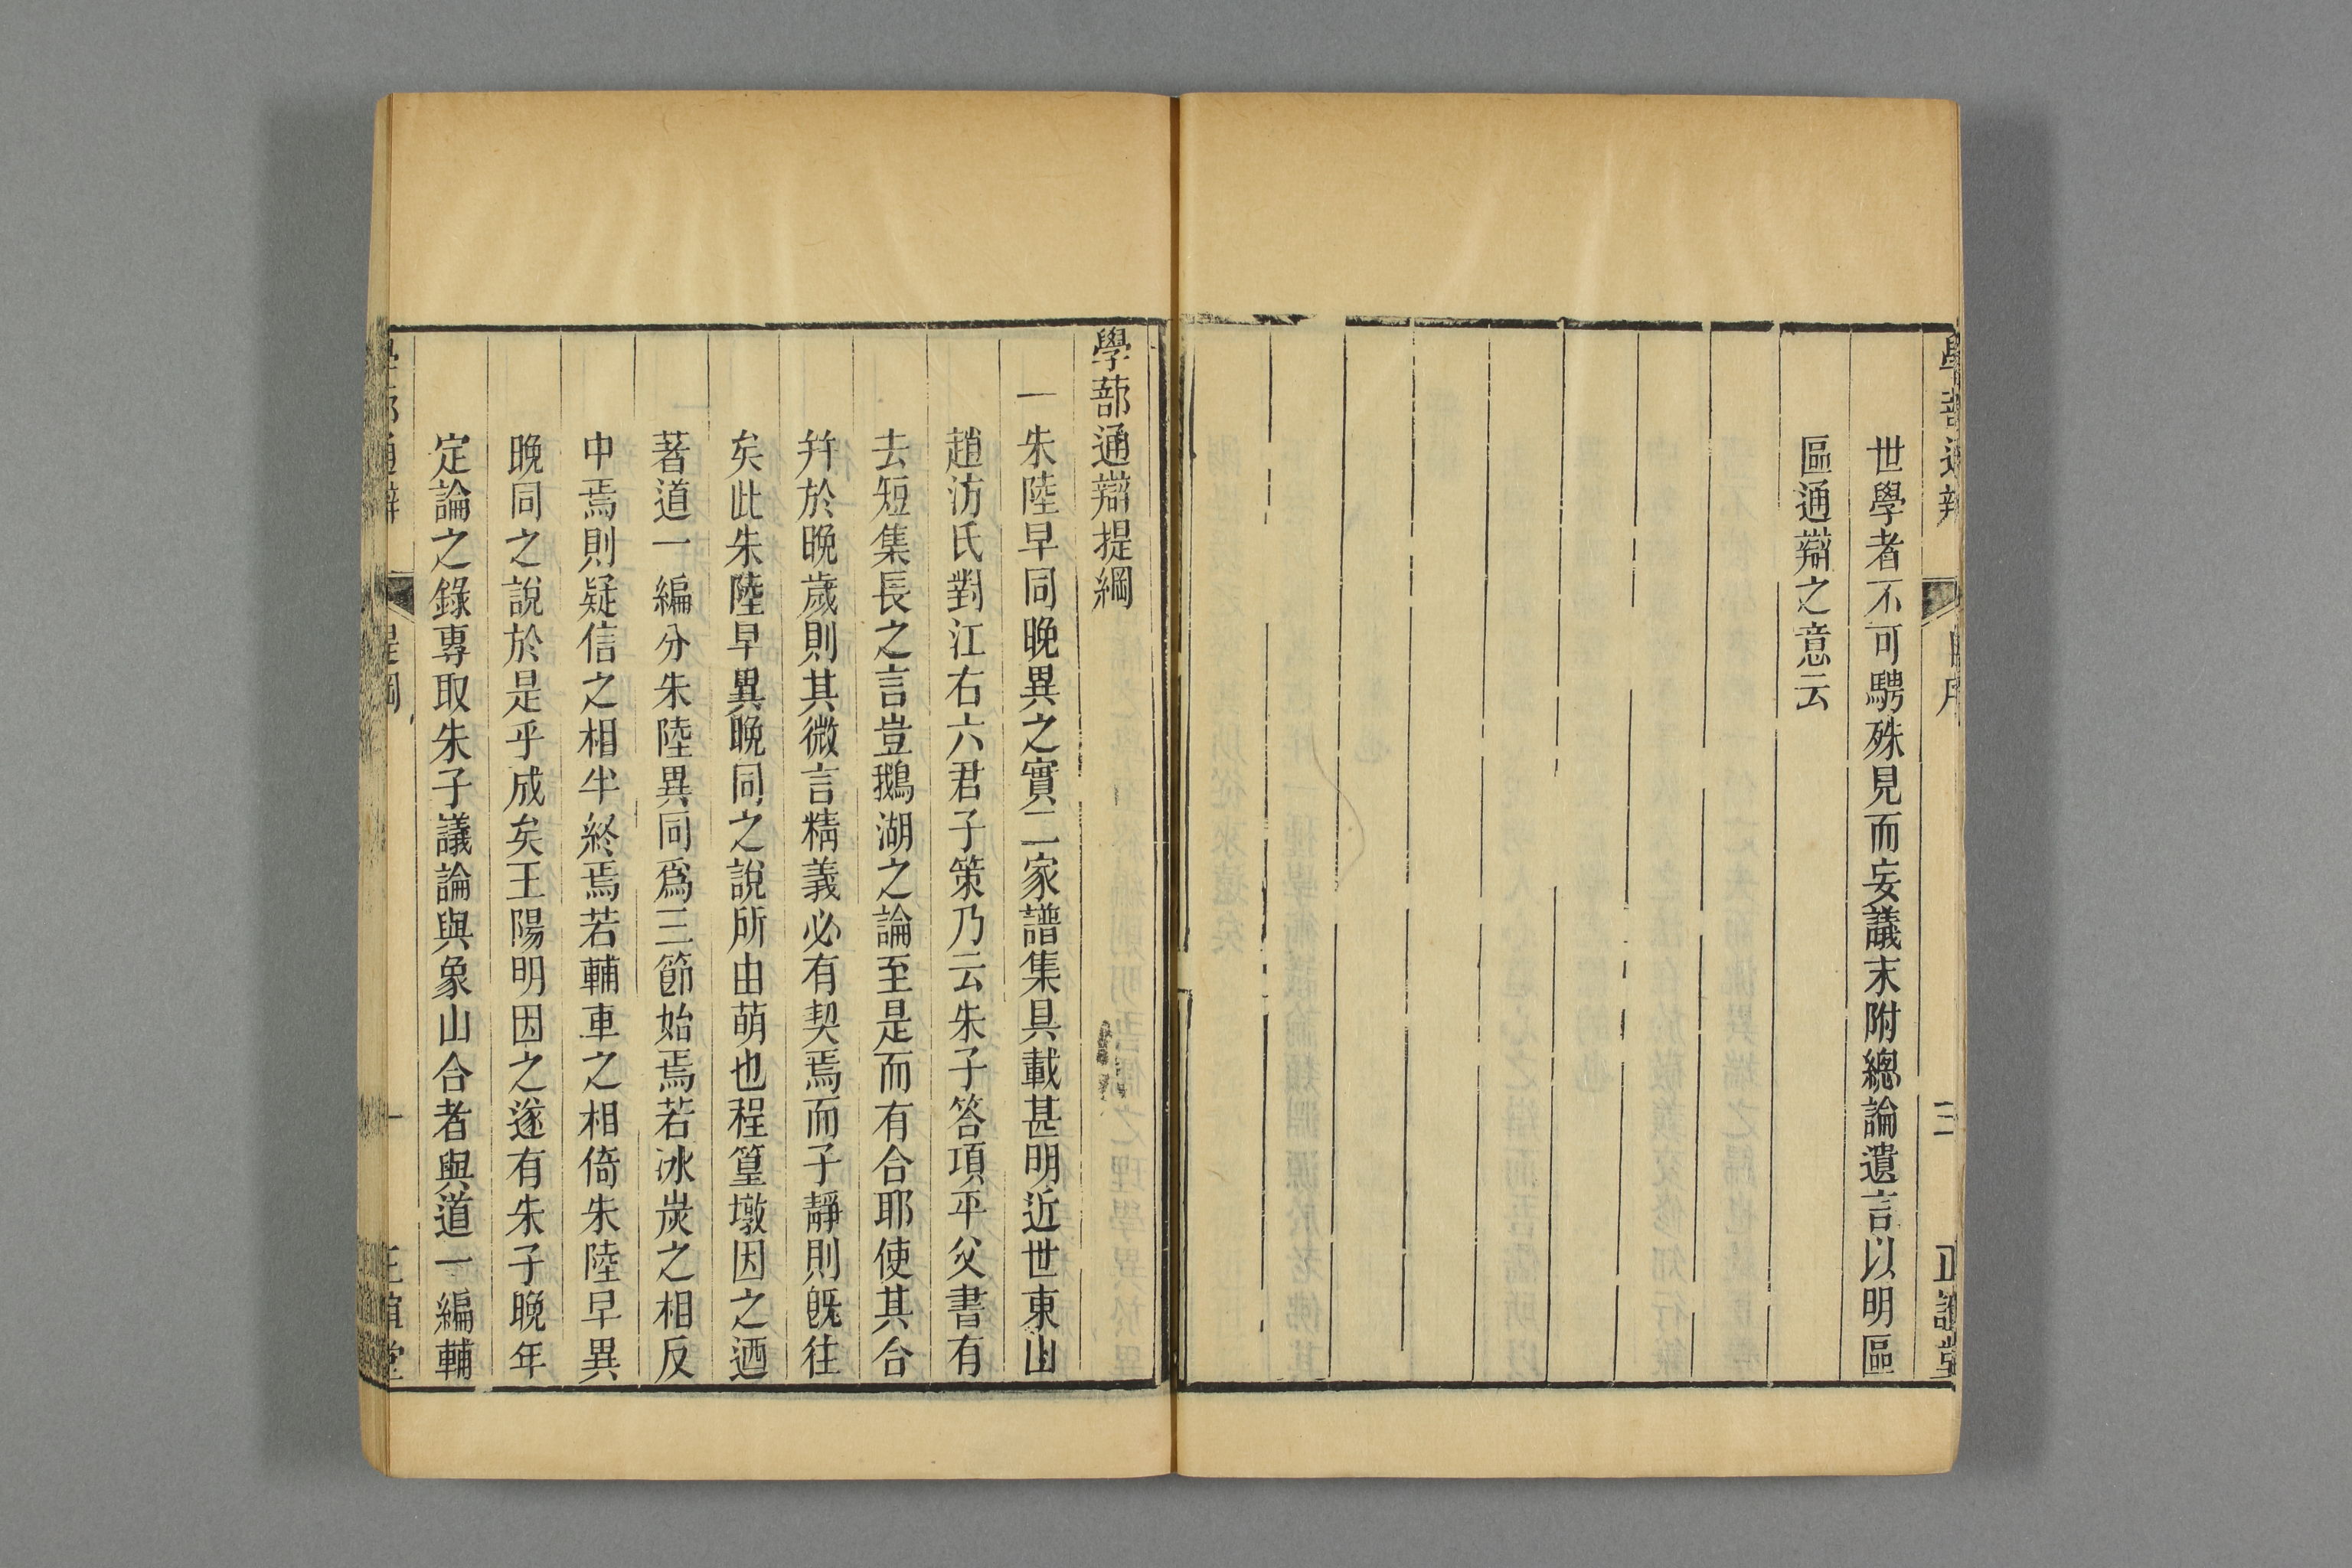 世學者不可騁殊見而妄議末附總論遺言以明區
區通辯之意云
學蔀通辯提綱
一朱陸早同晚異之實二家譜集具載甚明近世東山
趙汸氏對江右六君子策乃云朱子答項平父書有
去短集長之言豈鵝湖之論至是而有合耶使其合
幷於晚歲則其微言精義必有契焉而子靜則旣往
矣此朱陸早異晚同之說所由萌也程篁墩因之廼
著道一編分朱陸異同爲三節始焉若冰炭之相反
中焉則疑信之相半終焉若輔車之相倚朱陸早異
晚同之說於是乎成矣王陽明因之遂有朱子晚年
定論之錄專取朱子議論與象山合者與道一編輔